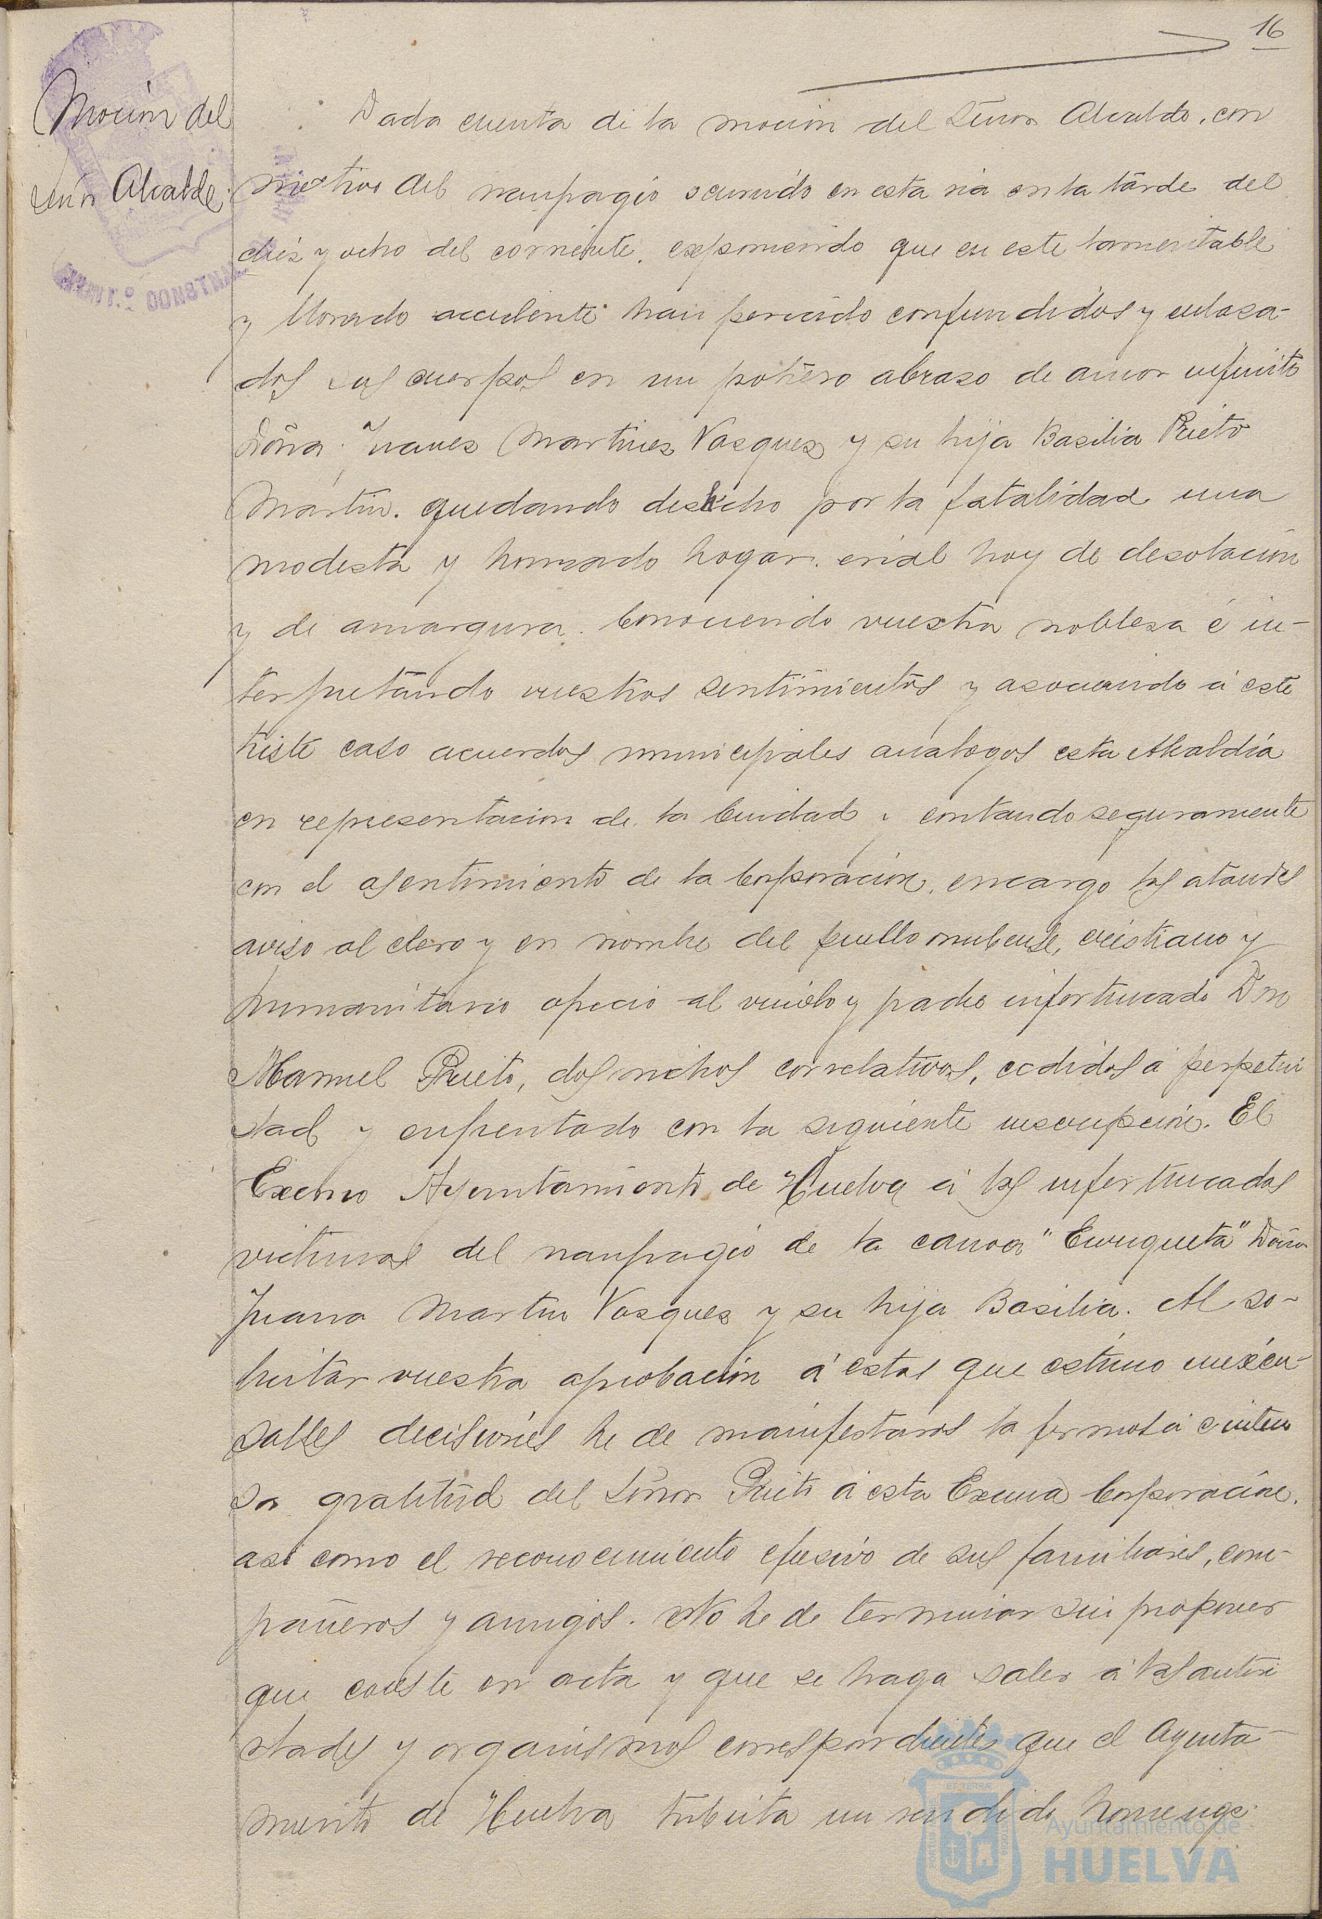 16
Moción del
señor Alcalde.
Dada cuenta de la moción del Señor Alcalde, con
motivo del naufragio ocurrido en esta ria en la tarde del
diez y ocho del corriente, exponiendo que en este lamentable
y llorado accidente han perecido confundidos y enlaza-
dos sus cuerpos en un postrero abrazo de amor infinito
Doña Juana Martinez Vasquez y su hija Basilia Prieto
Martin. quedando deshecho por la fatalidad una
modesta y honrado hogar. erial hoy de desolación
y de amargura. Conociendo vuestra nobleza é in-
terpretando vuestros sentimientos y asociando á este
triste caso acuerdos municipales analogos esta Alcaldía
en representacion de la Ciudad y contando seguramente
con el asentimiento de la Corporación, encargo los ataudes
aviso al clero y en nombre del pueblo onubense, cristiano y
humanitario ofreció al viudo y padre infortunado Don
Manuel Prieto, dos nichos correlativos, cedidos á perpetui
dad y enfrentado con la siguiente inscripción. El
Excmo Ayuntamiento de Huelva á las infortunadas
victimas del naufragio de la canoa "Enriqueta" Doña
Juana Martin Vasquez y su hija Basilia. Al so-
licitar vuestra aprobación á estas que estimo inexcu-
sables decisiones he de manifestaros la fermosa é inten
sa gratitud del Señor Prieto á esta Excma Corporación,
asi como el reconocimiento efusivo de sus familiares, com-
pañeros y amigos. No he de terminar sin proponer
que conste en acta y que se haga saber á las autori
dades y organismos correspondientes que el Ayunta-
miento de Huelva tributa un rendido homenage
Ayuntamiento de
HUELVA